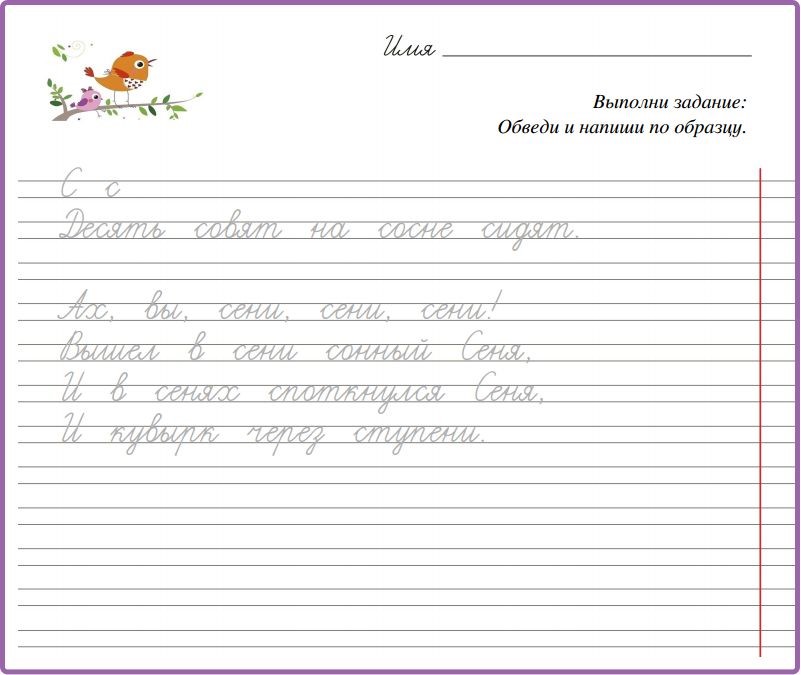 Имя
Выполни задание:
Обведи и напиши по образцу.
С с
Десять совят на сосне сидят.
Ах, вы, сени, сени, сени!
Вышел в сени сонный Сеня,
И в сенях споткнулся Сеня,
И кувырк через ступени.